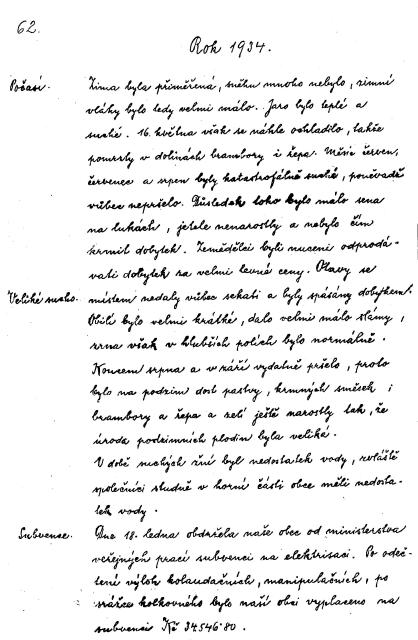 62.
Rok 1934.
Počasí. Zima byla přiměřená, sněhu mnoho nebylo, zimní
vláhy bylo tedy velmi málo. Jaro bylo teplé a
suché. 16. května však se náhle ochladilo, takže
pomrzly v dolinách brambory i řepa. Měsíc červen,
červenec a srpen byly katastrofálně suché, poněvadž
vůbec nepršelo. Důsledek toho bylo málo sena
na lukách, jetele nenarostly a nebylo čím
krmit dobytek. Zemědělci byli nuceni odprodá-
vati dobytek za velmi levné ceny. Otavy se
Veliké sucho. místem nedaly vůbec sekati a byly spásány dobytkem.
Obilí bylo velmi krátké, dalo velmi málo slámy,
zrna však v hlubších polích bylo normálně.
Koncem srpna a v září vydatně pršelo, proto
bylo na podzim dost pastvy, krmných směsek i
brambory a řepa a zelí ještě narostly tak, že
úroda podzimních plodin byla veliká.
V době suchých žní byl nedostatek vody, zvláště
společníci studně v horní části obce měli nedosta-
tek vody.
Subvence. Dne 18. ledna obdržela naše obec od ministerstva
veřejných prací subvenci na elektrisaci. Po odeč-
tení výloh kolaudačních, manipulačních, po
srážce kolkovného bylo naší obci vyplaceno na
subvenci Kč 34.546·80.